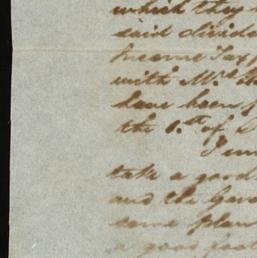 which they
said divide
Income Tax
with Mr.
have been
the 1.st of
take a good
and the Gov
some plan
a good